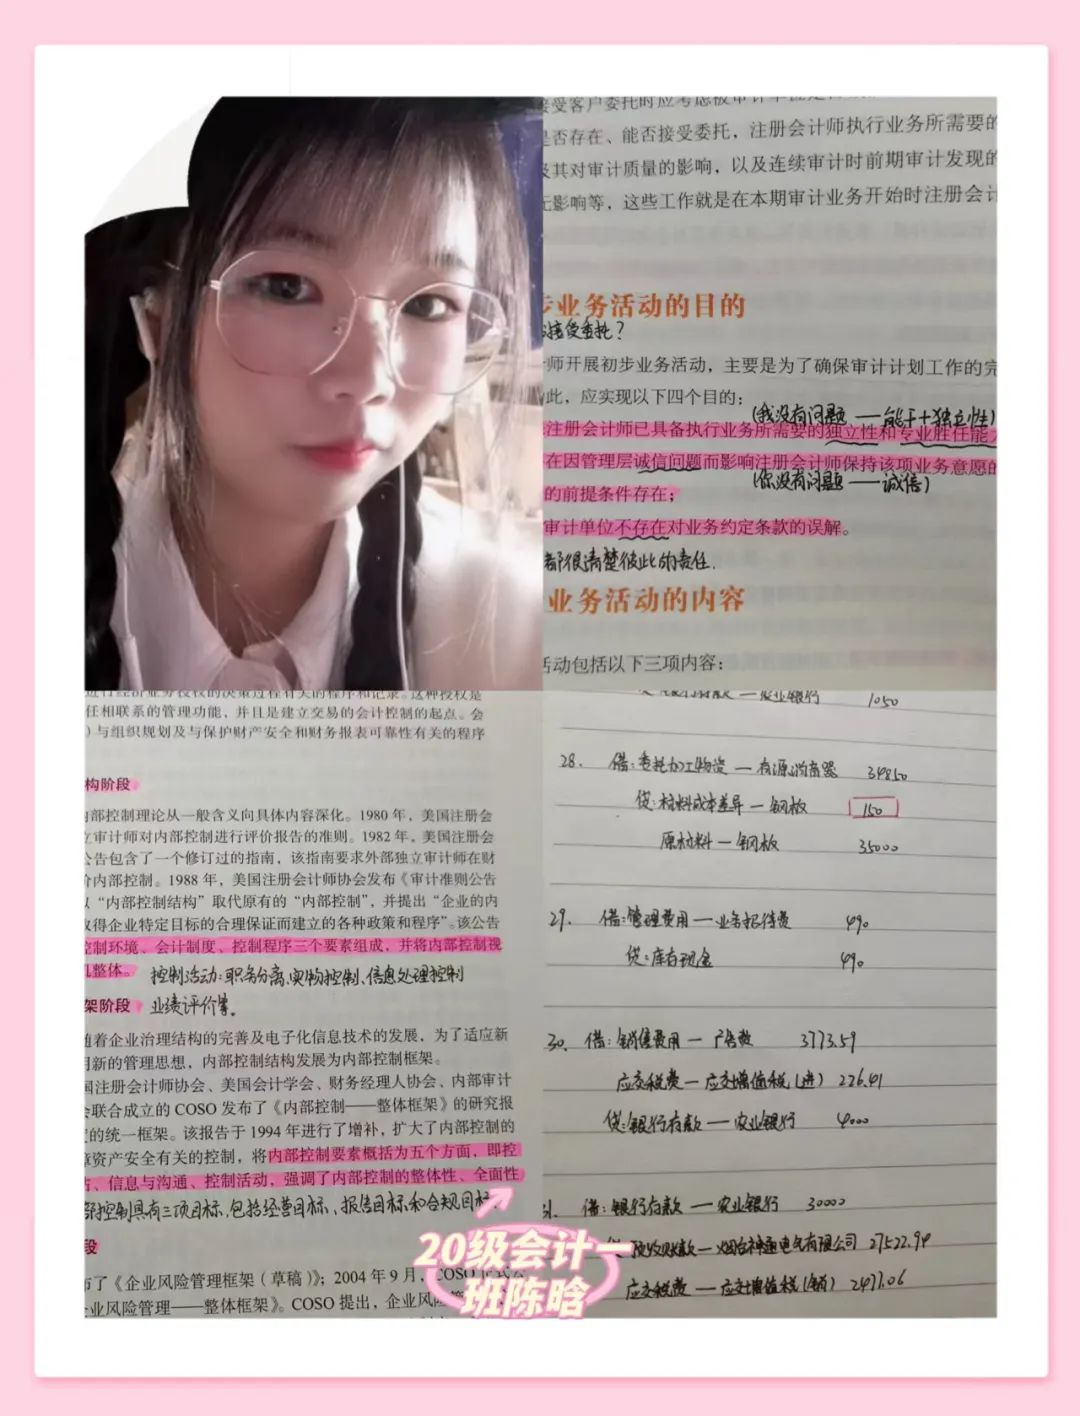 接受客户委托时应考虑被审计单位是
是否存在、能否接受委托，注册会计师执行业务所需要的
及其对审计质量的影响，以及连续审计时前期审计发现的
无影响等，这些工作就是在本期审计业务开始时注册会计
步业务活动的目的
接受委托？
师开展初步业务活动，主要是为了确保审计计划工作的完
此，应实现以下四个目的：
（我没有问题——能干+独立性）
注册会计师已具备执行业务所需要的独立性和专业胜任能力
在因管理层诚信问题而影响注册会计师保持该项业务意愿的
（你没有问题——诚信）
的前提条件存在；
审计单位不存在对业务约定条款的误解。
都很清楚彼此的责任.
业务活动的内容
活动包括以下三项内容：
进行经济业务授权的决策过程有关的程序和记录。这种授权是
任相联系的管理功能，并且是建立交易的会计控制的起点。会
）与组织规划及与保护财产安全和财务报表可靠性有关的程序
构阶段
内部控制理论从一般含义向具体内容深化。1980 年，美国注册会
立审计师对内部控制进行评价报告的准则。1982 年，美国注册会
公告包含了一个修订过的指南，该指南要求外部独立审计师在财
价内部控制。1988 年，美国注册会计师协会发布《审计准则公告
以“内部控制结构”取代原有的“内部控制”，并提出“企业的内
取得企业特定目标的合理保证而建立的各种政策和程序”。该公告
控制环境、会计制度、控制程序三个要素组成，并将内部控制视
机整体。 控制活动：职务分离、实物控制、信息处理控制
架阶段 业绩评价等。
随着企业治理结构的完善及电子化信息技术的发展，为了适应新
用新的管理思想，内部控制结构发展为内部控制框架。
国注册会计师协会、美国会计学会、财务经理人协会、内部审计
会联合成立的 COSO 发布了《内部控制——整体框架》的研究报
的统一框架。该报告于 1994 年进行了增补，扩大了内部控制的
章资产安全有关的控制，将内部控制要素概括为五个方面，即控
估、信息与沟通、控制活动，强调了内部控制的整体性、全面性
部控制具有三项目标，包括经营目标、报告目标和合规目标.
段
布了《企业风险管理框架（草稿）》；2004 年 9 月，COSO 正式公
企业风险管理——整体框架》。COSO 提出，企业风险管
贷：银行存款—农业银行 1050
28. 借：委托加工物资—有源消音器 34850
贷：材料成本差异—钢板 150
原材料—钢板 35000
29. 借：管理费用—业务招待费 490
贷：库存现金 490
30. 借：销售费用—广告费 3773.59
应交税费—应交增值税（进） 226.41
贷：银行存款—农业银行 4000
31. 借：银行存款—农业银行 30000
贷：预收账款—烟台神通电气有限公司 27522.94
应交税费—应交增值税（销） 2477.06
20级会计一
班陈晗